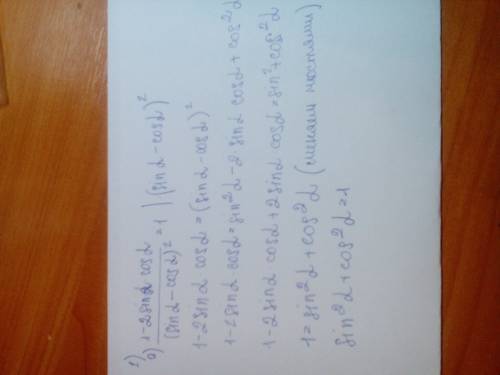 1)
а) 1-2sinα cosα / (sinα-cosα)² = 1 | ·(sinα-cosα)²
1-2sinα cosα = (sinα-cosα)²
1-2sinα cosα = sin²α-2·sinα cosα + cos²α
1-2sinα cosα + 2sinα cosα = sin²+cos²α
1 = sin²α + cos²α (меняем местами)
sin²α + cos²α = 1